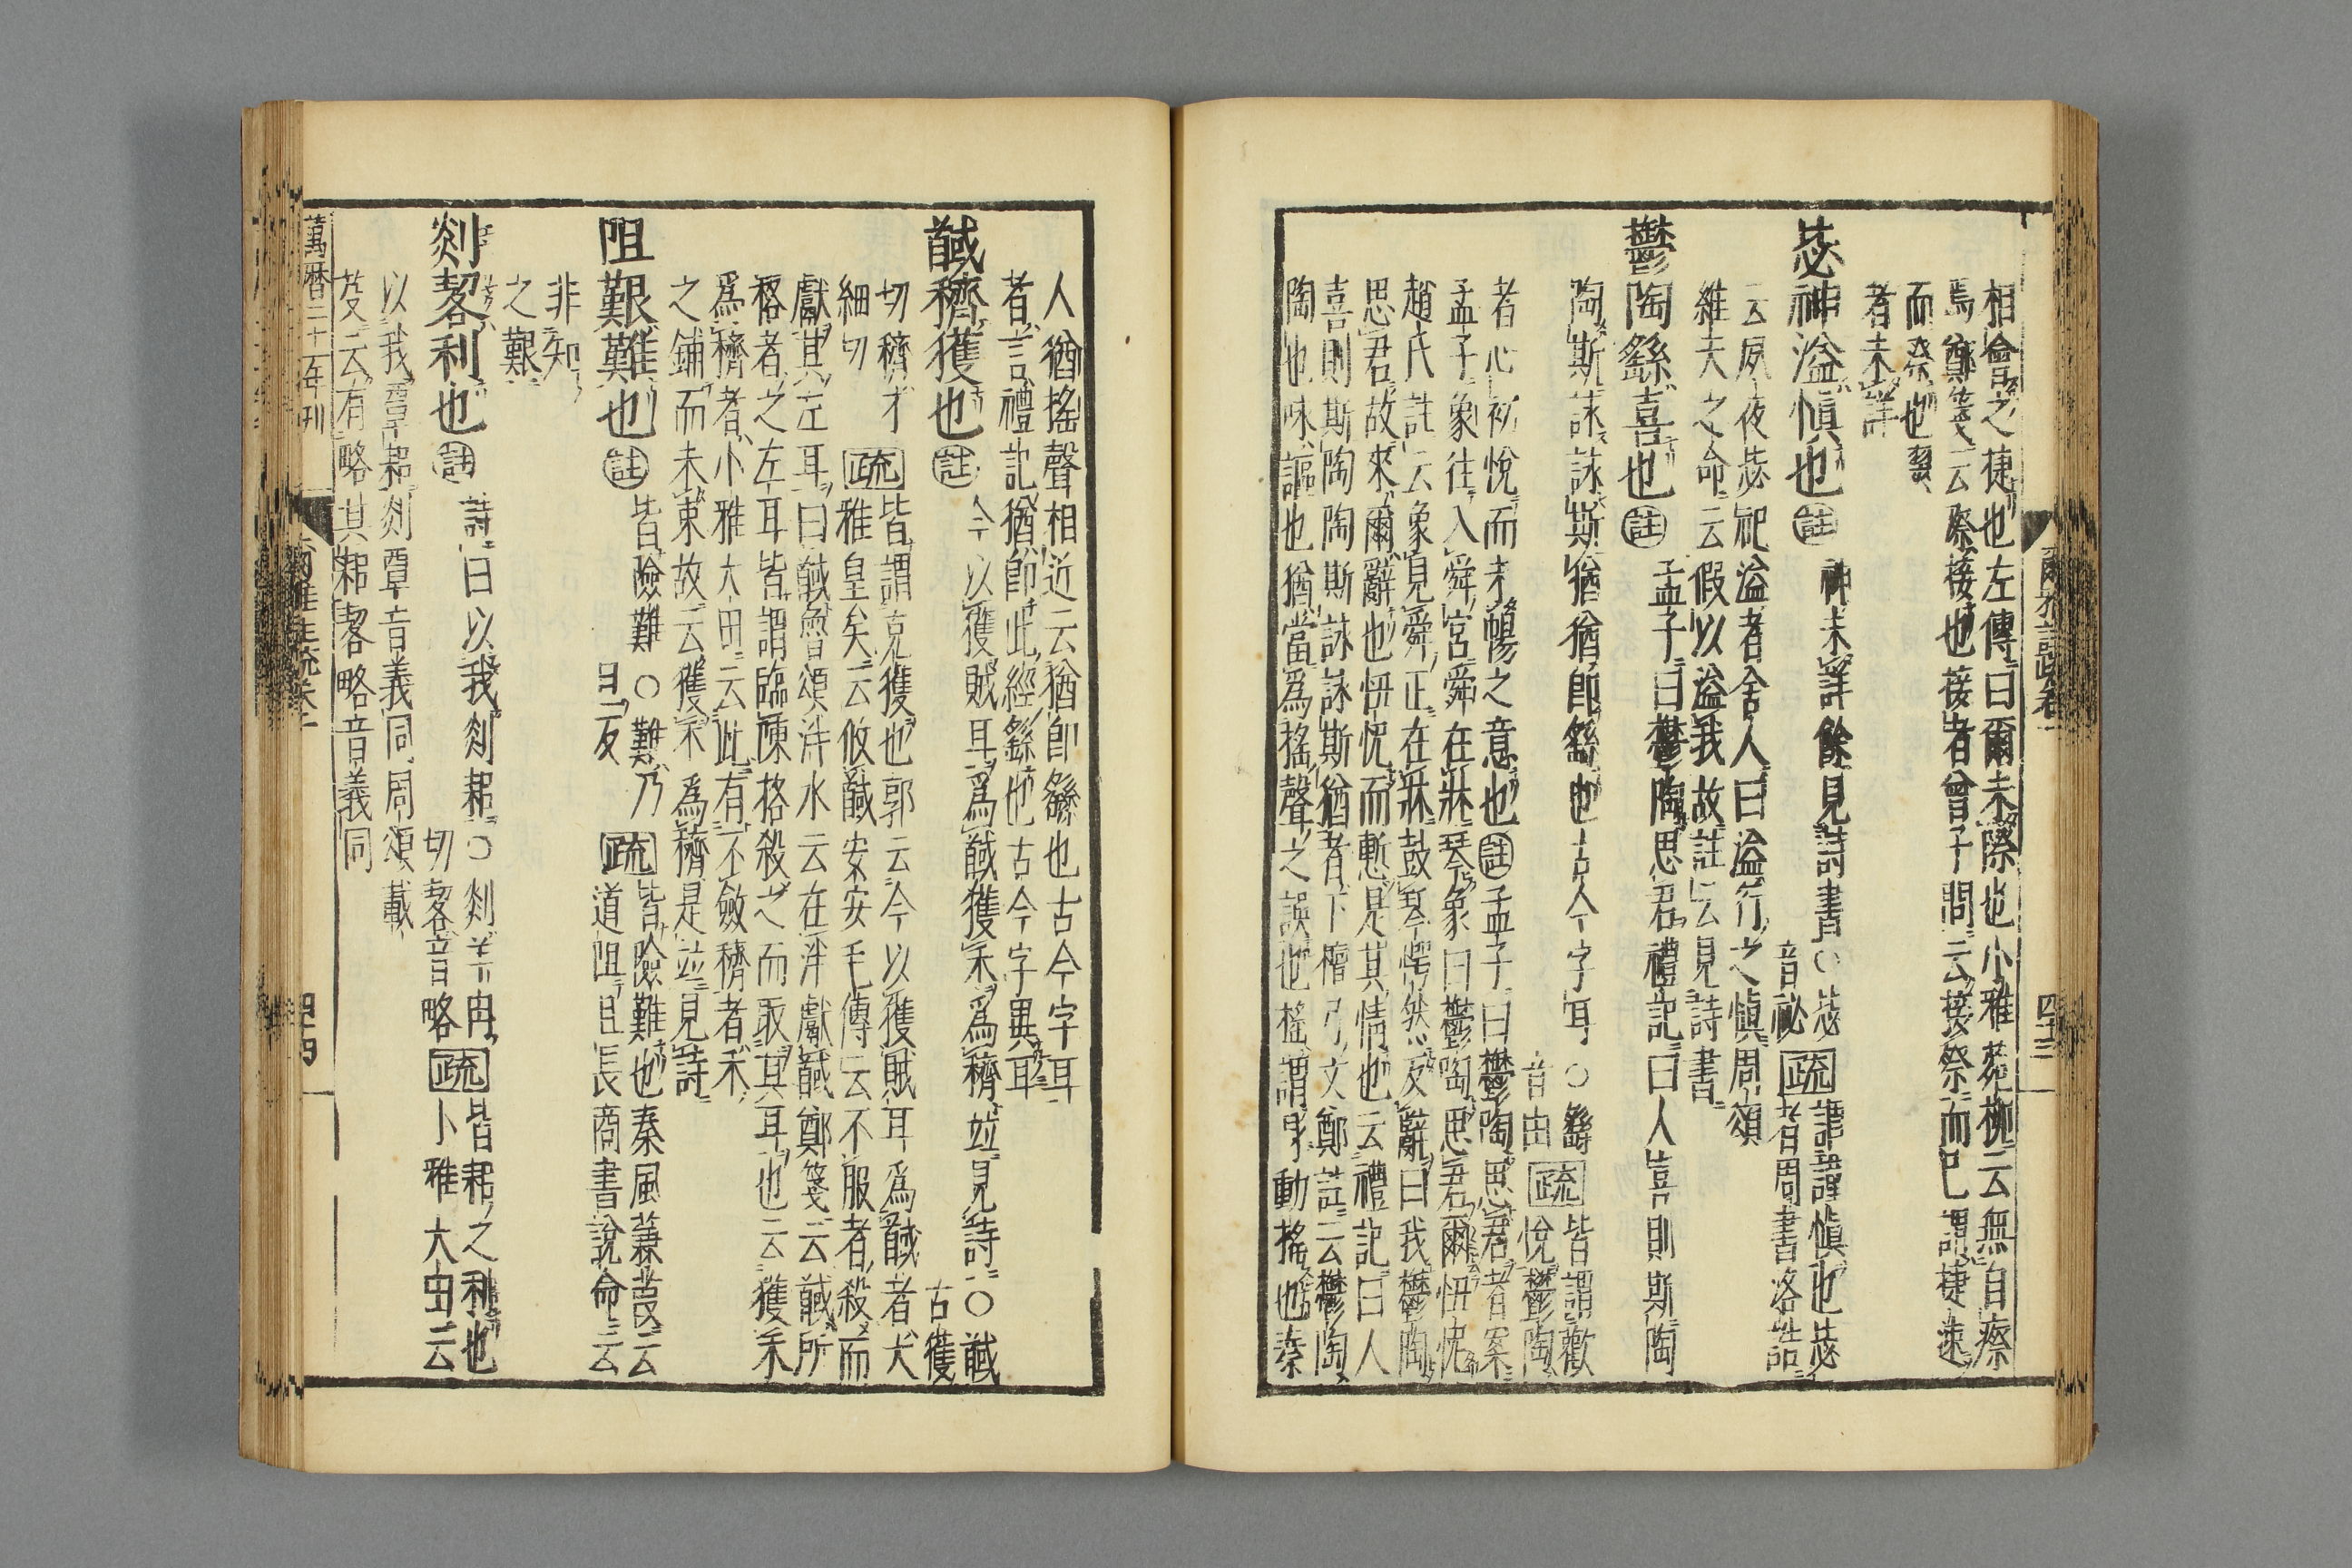 相會之捷也左傳曰爾未際也小雅菀柳云無自瘵
焉鄭箋云際接也接者曾子問云接祭而已謂捷速
而祭也翜
者未詳
毖神溢慎也註神未詳餘見詩書○毖
音祕疏謂謹慎也毖
者周書洛誥
云夙夜毖祀溢者舍人曰溢行之慎周頌
維天之命云假以溢我故註云見詩書
鬱陶繇喜也註孟子曰鬱陶思君禮記曰人喜則斯陶
陶斯詠詠斯猶猶即繇也古今字耳○繇
音由疏皆謂歡
悅鬱陶
者心初悅而未暢之意也註孟子曰鬱陶思君者案
孟子象往入舜宮舜在牀琴象曰鬱陶思君爾忸怩
趙氏註云象見舜正在牀鼓琴愕然反辭曰我鬱陶
思君故來爾辭也忸怩而慙是其情也云禮記曰人
喜則斯陶陶斯詠詠斯猶者下檀弓文鄭註云鬱陶
陶也咏謳也猶當為搖聲之誤也搖謂身動搖也秦
爾雅註疏卷一
四十三
人猶搖聲相近云猶即繇也古今字耳
者言禮記猶即此經繇也古今字異耳
馘穧獲也註今以獲賊耳為馘獲禾為穧並見詩○馘
古獲
切穧才
細切
疏皆謂克獲也郭云今以獲賊耳為馘者大
雅皇矣云攸馘安安毛傳云不服者殺而
獻其左耳曰馘魯頌泮水云在泮獻馘鄭箋云馘所
格者之左耳皆謂臨陳格殺之而取其耳也云獲禾
為穧者小雅大田云此有不斂穧者禾
之鋪而未束故云獲禾為穧是並見詩
阻艱難也註皆險難○難乃
旦反疏皆險難也秦風蒹葭云
道阻且長商書說命云
非知
之艱
剡㓼利也註詩曰以我剡耜○剡羊冉
切㓼音略疏皆耜之利也
小雅大田云
以我覃耜剡覃音義同周頌載
芟云有略其耜㓼略音義同
萬曆二十一年刊
爾雅註疏卷一
四十四